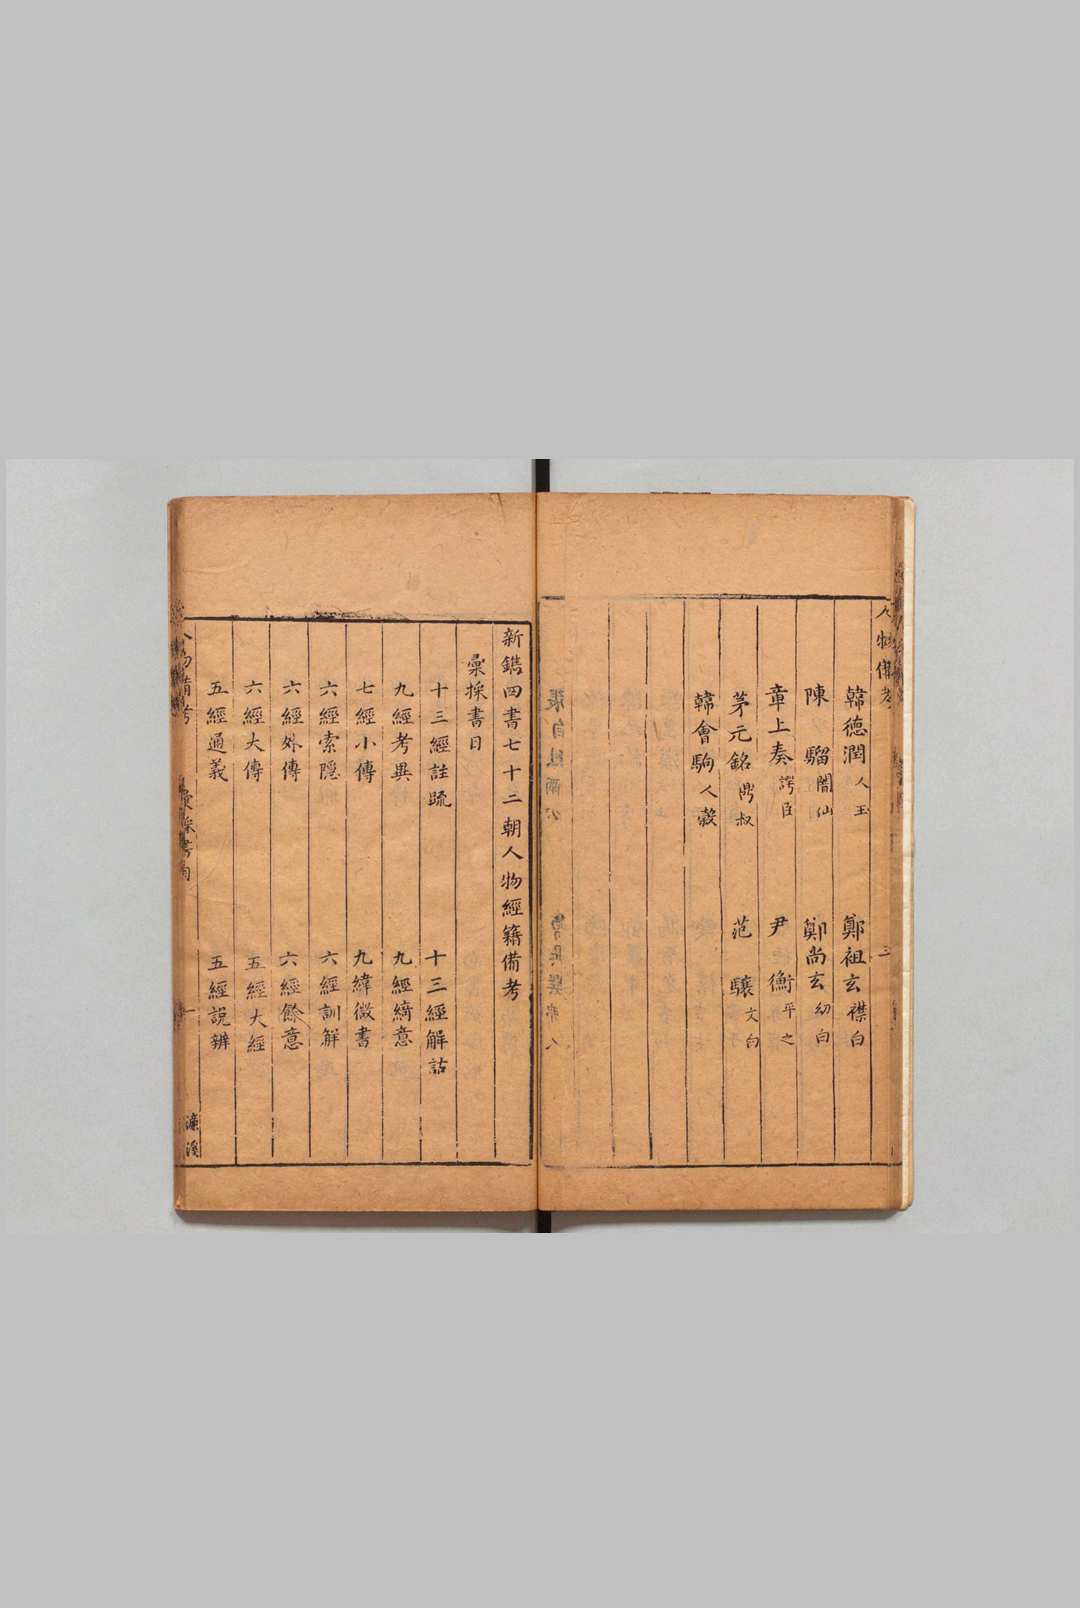 人物備考
三
韓德潤人玉 鄭祖玄襟白
陳騮闇仙 鄭尚玄幼白
章上奏諤臣 尹衡平之
茅元銘鼎叔 范驤文白
韓會駒人穀
新鐫四書七十二朝人物經籍備考
彙採書目
十三經註疏 十三經解詁
九經考異 九經綺意
七經小傳 九緯微書
六經索隱 六經訓解
六經外傳 六經餘意
六經大傳 五經大經
五經通義 五經說辨
人物備考
彙採書目
一
濂溪